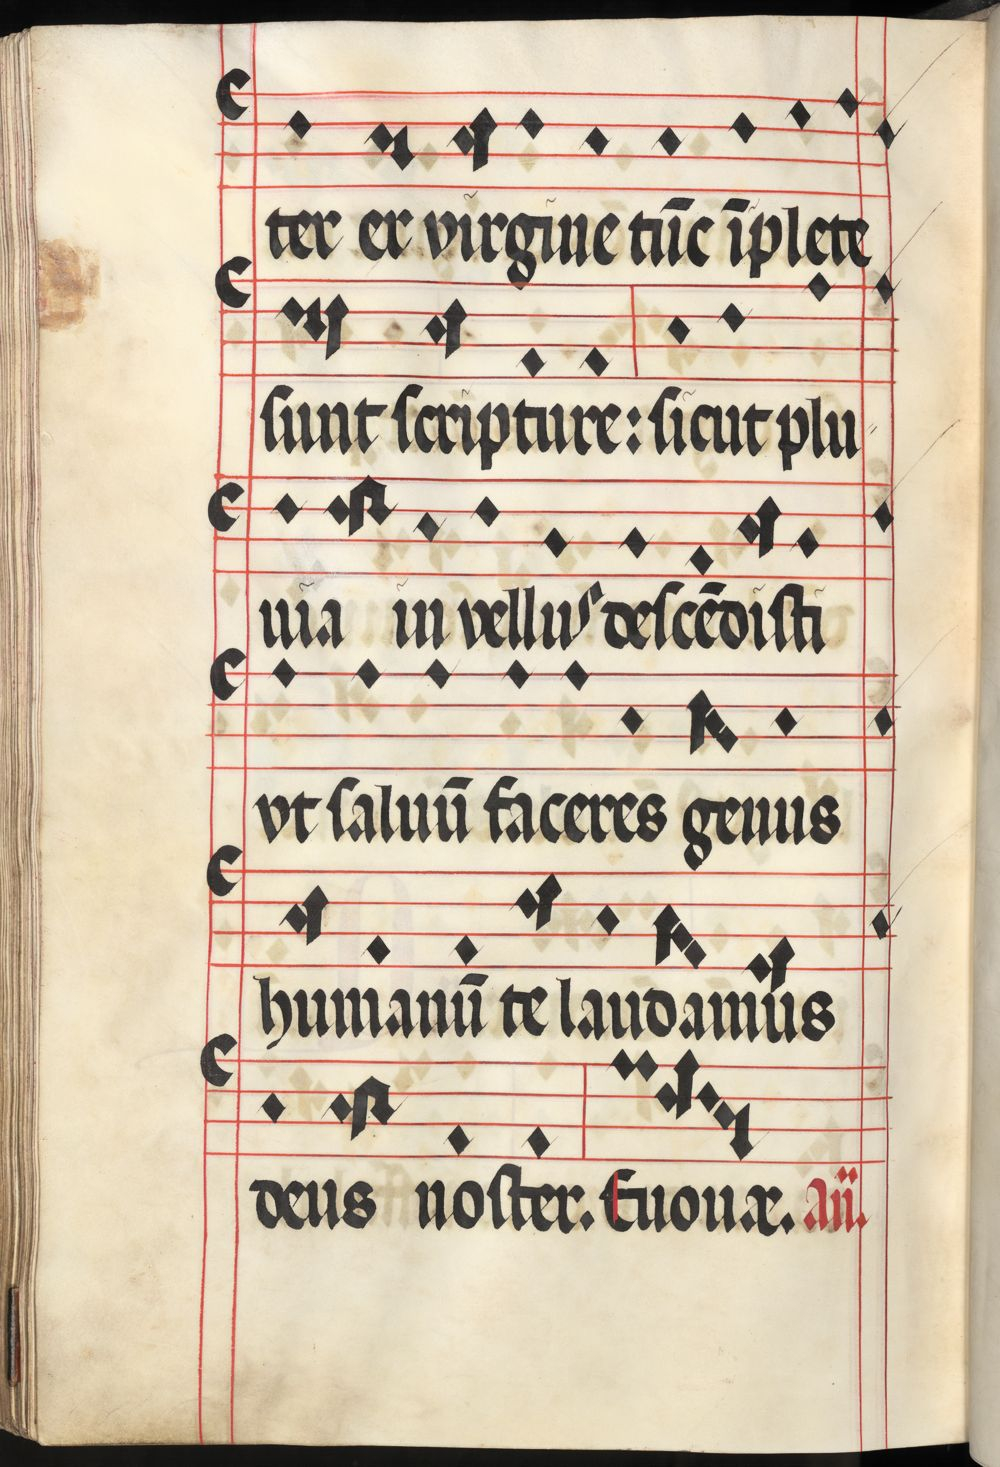 ter ex virgine tūc īplete
sunt scripture: sicut plu
uia in vellus descēdisti
vt saluū faceres genus
humanū te laudamus
deus noster. Euouæ. añ.